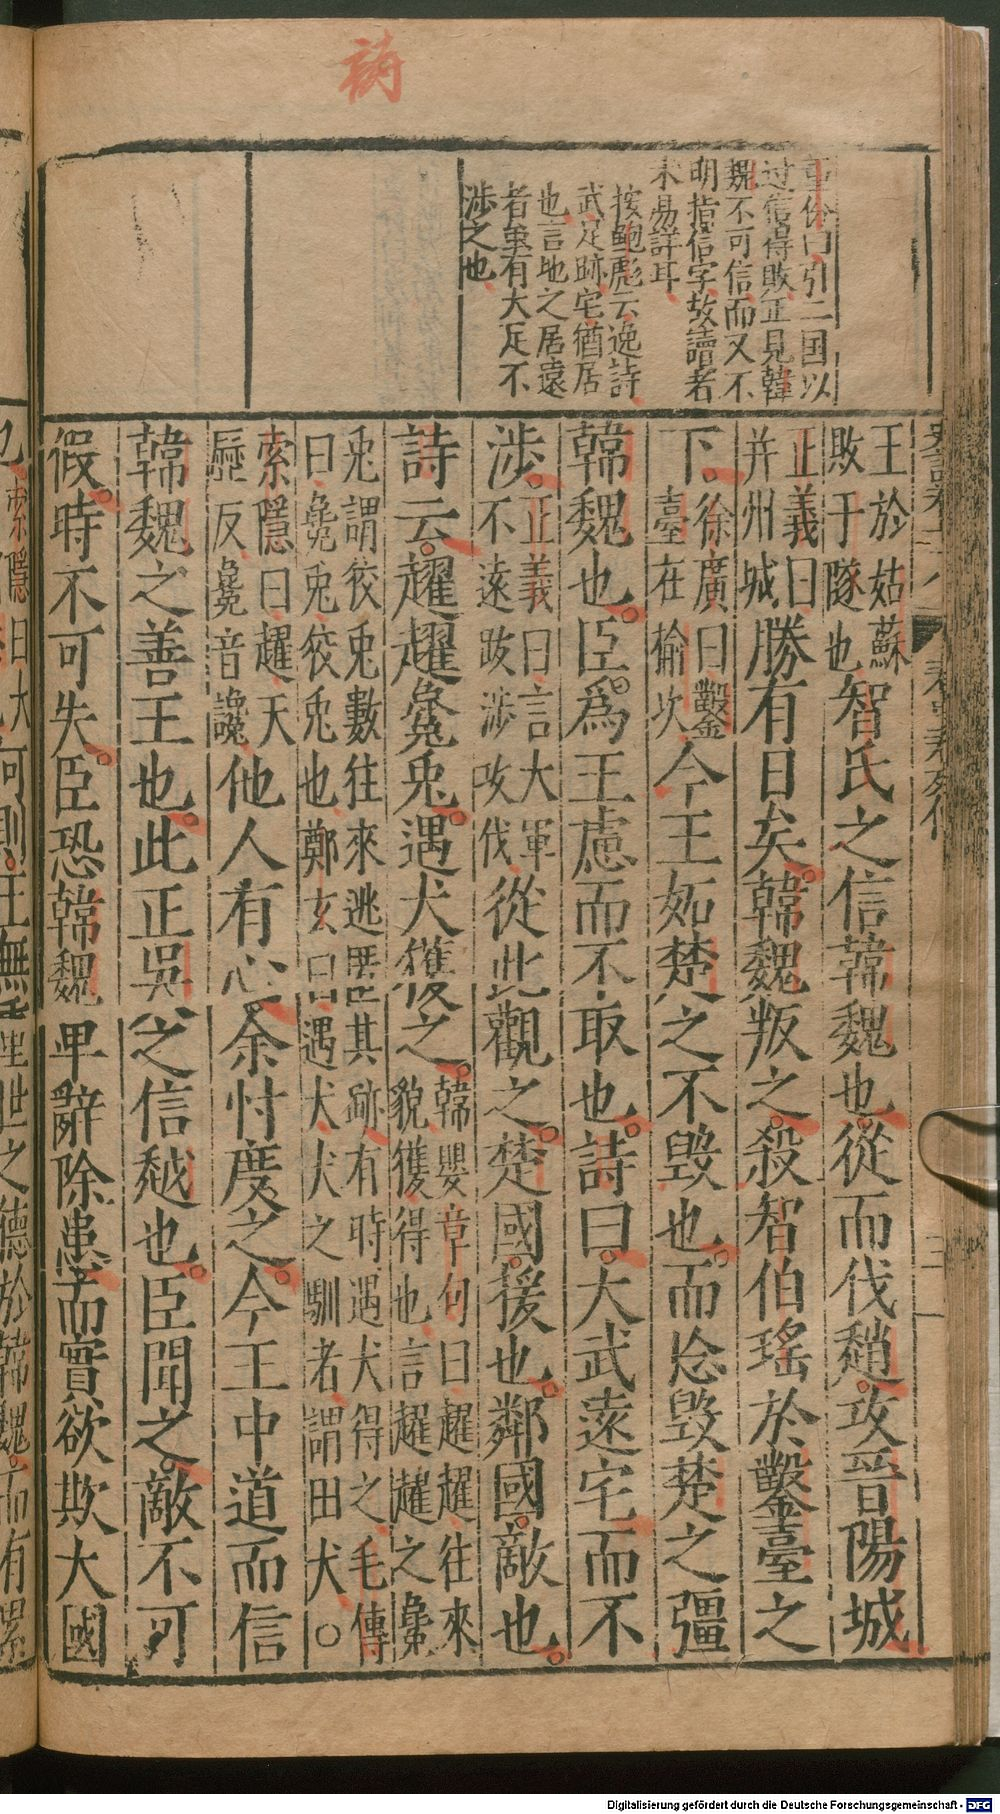 詩
董份曰引二国以
过信得敗正見韓
魏不可信而又不
明指信字故讀者
未易詳耳
按鮑彪云逸詩
武足跡宅猶居
也言地之居遠
者雖有大足不
涉之也
王於姑蘇
敗于隧也智氏之信韓魏也從而伐趙攻晉陽城
正義曰
并州城勝有日矣韓魏叛之殺智伯瑤於鑿臺之
下徐廣曰鑿
臺在榆次今王妬楚之不毀也而忘毀楚之彊
韓魏也臣為王慮而不取也詩曰大武遠宅而不
涉正義曰言大軍
不遠跋涉攻伐從此觀之楚國援也鄰國敵也
詩云趯趯毚兎遇犬獲之韓嬰章句曰趯趯往來
貌獲得也言趯趯之毚
兎謂狡兎數往來逃匿其跡有時遇犬得之毛傳
曰毚兎狡兎也鄭玄曰遇犬犬之馴者謂田犬
索隱曰趯天
歷反毚音讒他人有心余忖度之今王中道而信
韓魏之善王也此正吳之信越也臣聞之敵不可
假時不可失臣恐韓魏卑辭除患而實欲欺大國
也索隱曰大
何則王無重世之德於韓魏而有累
Digitalisierung gefördert durch die Deutsche Forschungsgemeinschaft - DFG